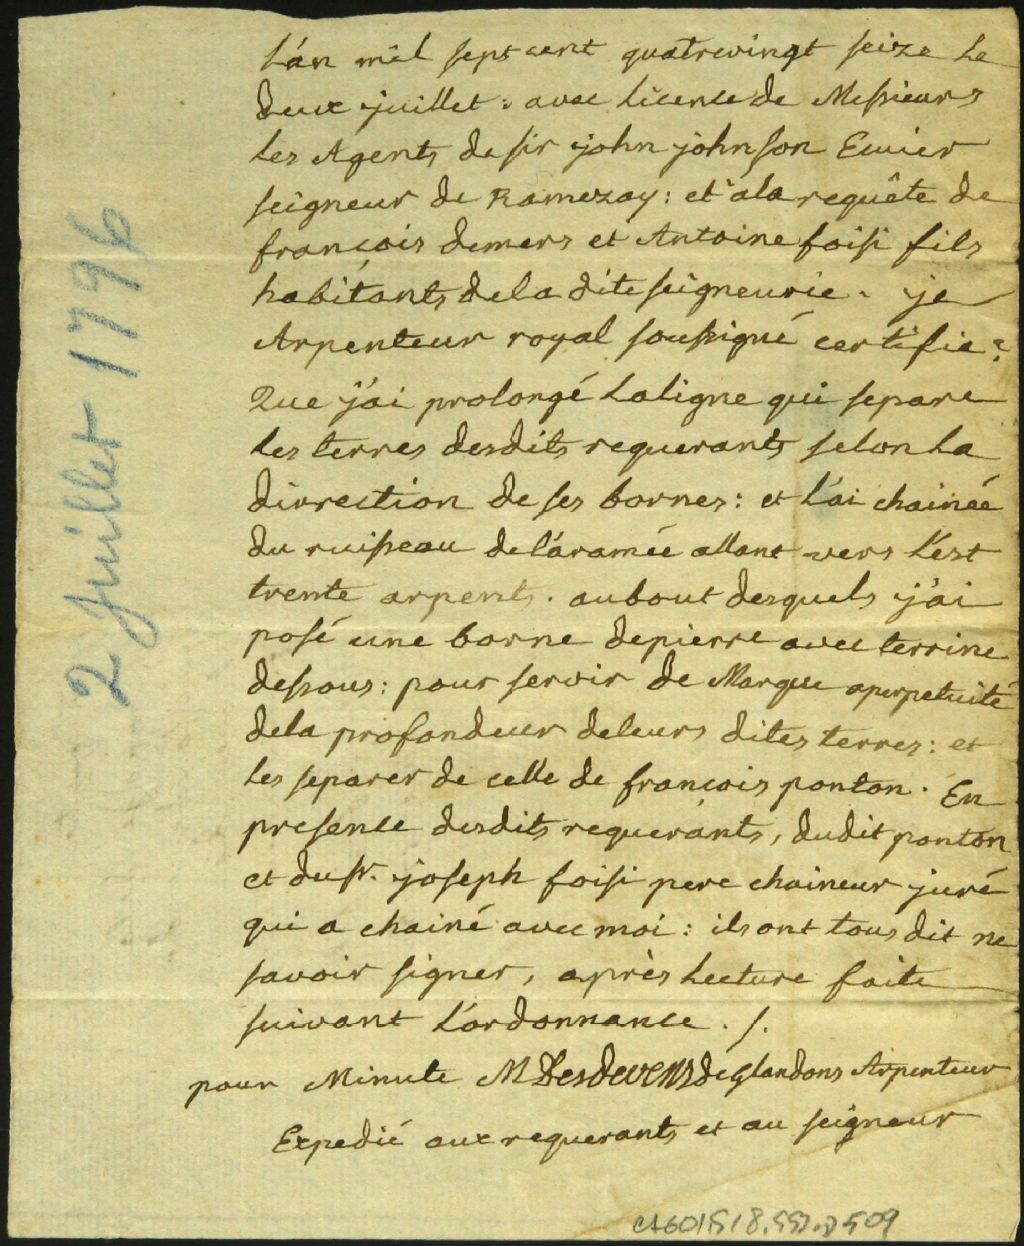 L'an mil sept cent quatrevingt seize Le
deux juillet : avec Licence de Messieurs
Les Agents de sir john johnson Ecuier
seigneur de Ramezay : et a la requête de
francois demers et Antoine foisi fils
habitants de la dite seigneurie . je
Arpenteur royal soussigné certifie :
Que j'ai prolongé La ligne qui separe
Les terres desdits requerants selon La
dirrection de ses bornes : et L'ai chainée
du ruisseau de l'aramée allant vers L'est
trente arpents . au bout desquels j'ai
posé une borne de pierre avec terrine
dessous : pour servir de Marque a perpetuité
de la profondeur de leurs dites terres : et
Les separer de celle de francois ponton . En
presence desdits requerants, dudit ponton
et du sr. joseph foisi pere chaineur juré
qui a chainé avec moi : ils ont tous dit ne
savoir signer, après Lecture faite
suivant L'ordonnance . /.
pour Minute M Desdevens de Glandons Arpenteur
Expedié aux requerants et au seigneur
2 Juillet 1796